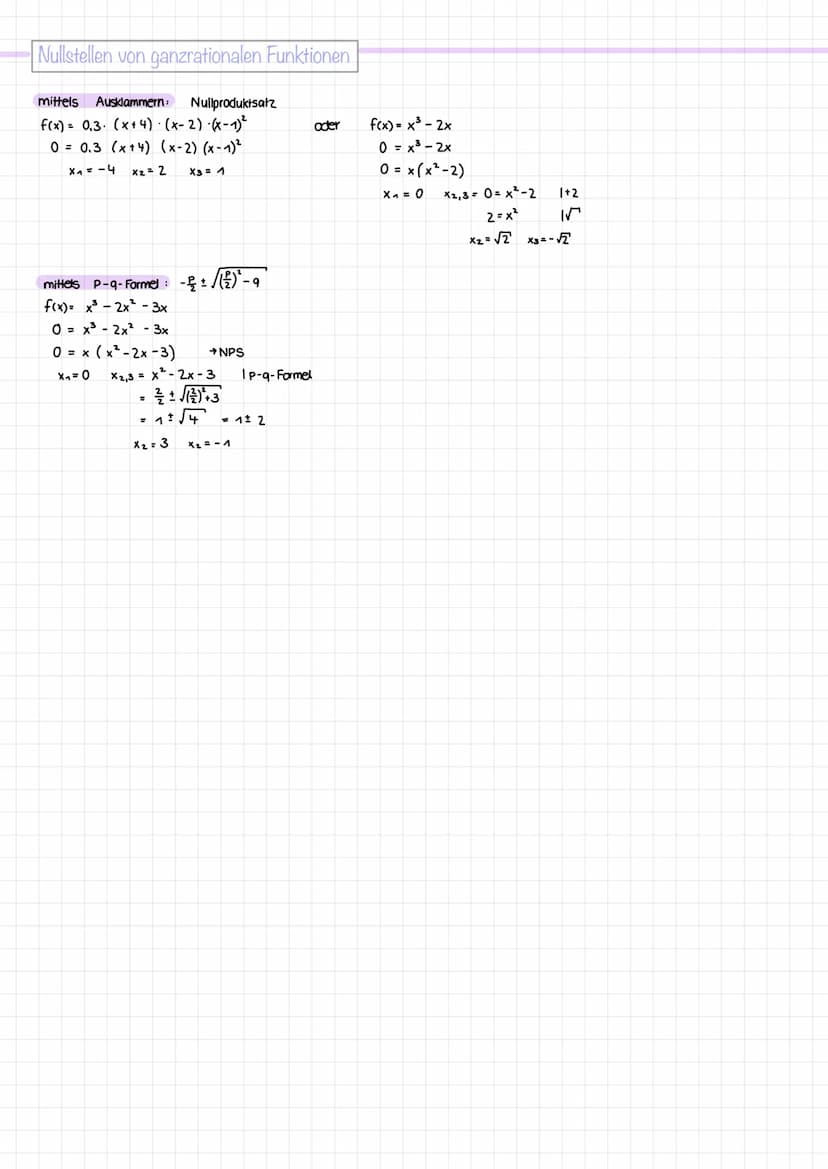 Nullstellen von ganzrationalen Funktionen
mittels Ausklammern: Nullproduktsatz
f(x) = 0,3 · (x+4) · (x-2) · (x-1)²
0 = 0.3 (x+4) (x-2) (x-1)²
x₁ = -4 x₂ = 2 x₃ = 1
oder
f(x) = x³ - 2x
0 = x³ - 2x
0 = x(x² - 2)
x₁ = 0 x₂,₃ = 0 = x² - 2 |+2
2 = x² |√
x₂ = √2 x₃ = -√2
mittels p-q-Formel: -p/2 ± √((p/2)² - q)
f(x) = x³ - 2x² - 3x
0 = x³ - 2x² - 3x
0 = x (x² - 2x - 3) → NPS
x₁ = 0 x₂,₃ = x² - 2x - 3 | p-q-Formel
= 2/2 ± √((2/2)² + 3)
= 1 ± √4 = 1 ± 2
x₂ = 3 x₂ = -1